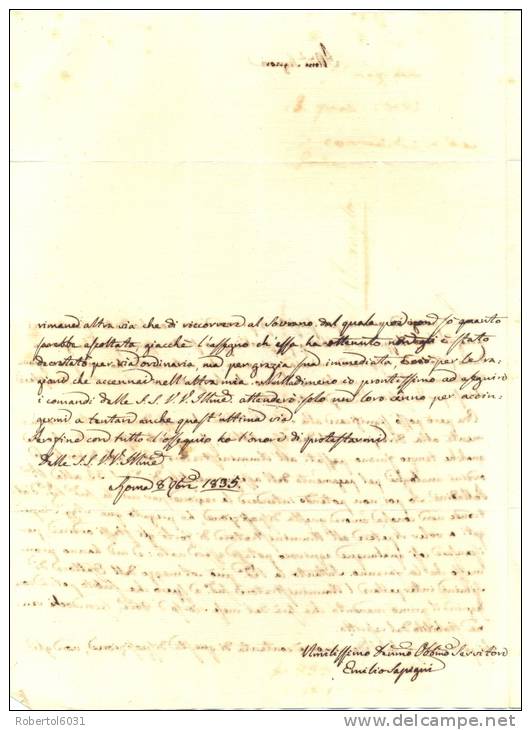 rimane altra via che di ricorrere al Sovrano, dal quale poi non so quanto
sarebbe ascoltata giacchè l'assegno ch'essa ha ottenuto non gli è stato
decretato per via ordinaria, ma per grazia sua immediata e ciò per le ra-
gioni che accennai nell'altra mia. Nulladimeno io prontissimo ad eseguire
i comandi delle S.S. V.V. Illme attenderò solo un loro cenno per accin-
germi a tentare anche quest'ultima via.
con tutto l'ossequio ho l'onore di protestarmi
Delle S.S. V.V. Illme
Roma 8 9bre 1835
Umilissimo Devmo Obbmo Servitore
Emilio
Robertol6031
delcampe.net